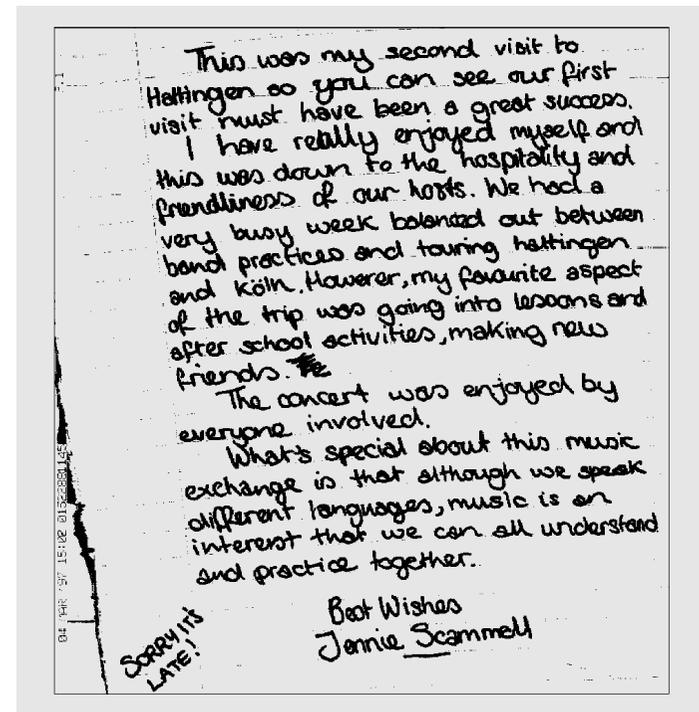 This was my second visit to
Hattingen so you can see our first
visit must have been a great success.
I have really enjoyed myself and
this was down to the hospitality and
friendliness of our hosts. We had a
very busy week balanced out between
band practices and touring hattingen
and Köln. However, my favourite aspect
of the trip was going into lessons and
after school activities, making new
friends.
The concert was enjoyed by
everyone involved.
What's special about this music
exchange is that although we speak
different languages, music is an
interest that we can all understand
and practice together.
Best Wishes
Jennie Scammell
SORRY IT'S
LATE!
04 MAR '97 15:02